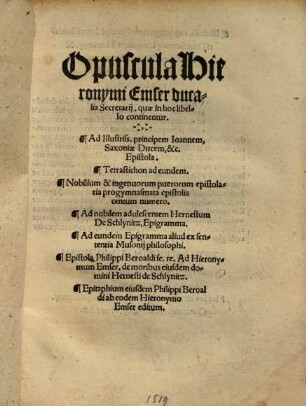 Opuscula Hie
ronymi Emser duca-
lis Secretarij, quæ in hoc libel-
lo continentur.
¶ Ad Illustriss. principem Ioannem,
Saxoniæ Ducem, &c.
Epistola.
¶ Tetrastichon ad eundem.
¶ Nobilium & ingenuorum puerorum epistola-
ria progymnasmata epistolis
centum numero.
¶ Ad nobilem adulescentem Hernestum
De Schlynitz, Epigramma.
¶ Ad eundem Epigramma aliud ex sen-
tentia Musonij philosophi.
¶ Epistola Philippi Beroaldi fe. re. Ad Hierony-
mum Emser, de moribus eiusdem do-
mini Hernesti de Schlynitz.
¶ Epitaphium eiusdem Philippi Beroal
di ab eodem Hieronymo
Emser editum.
1519